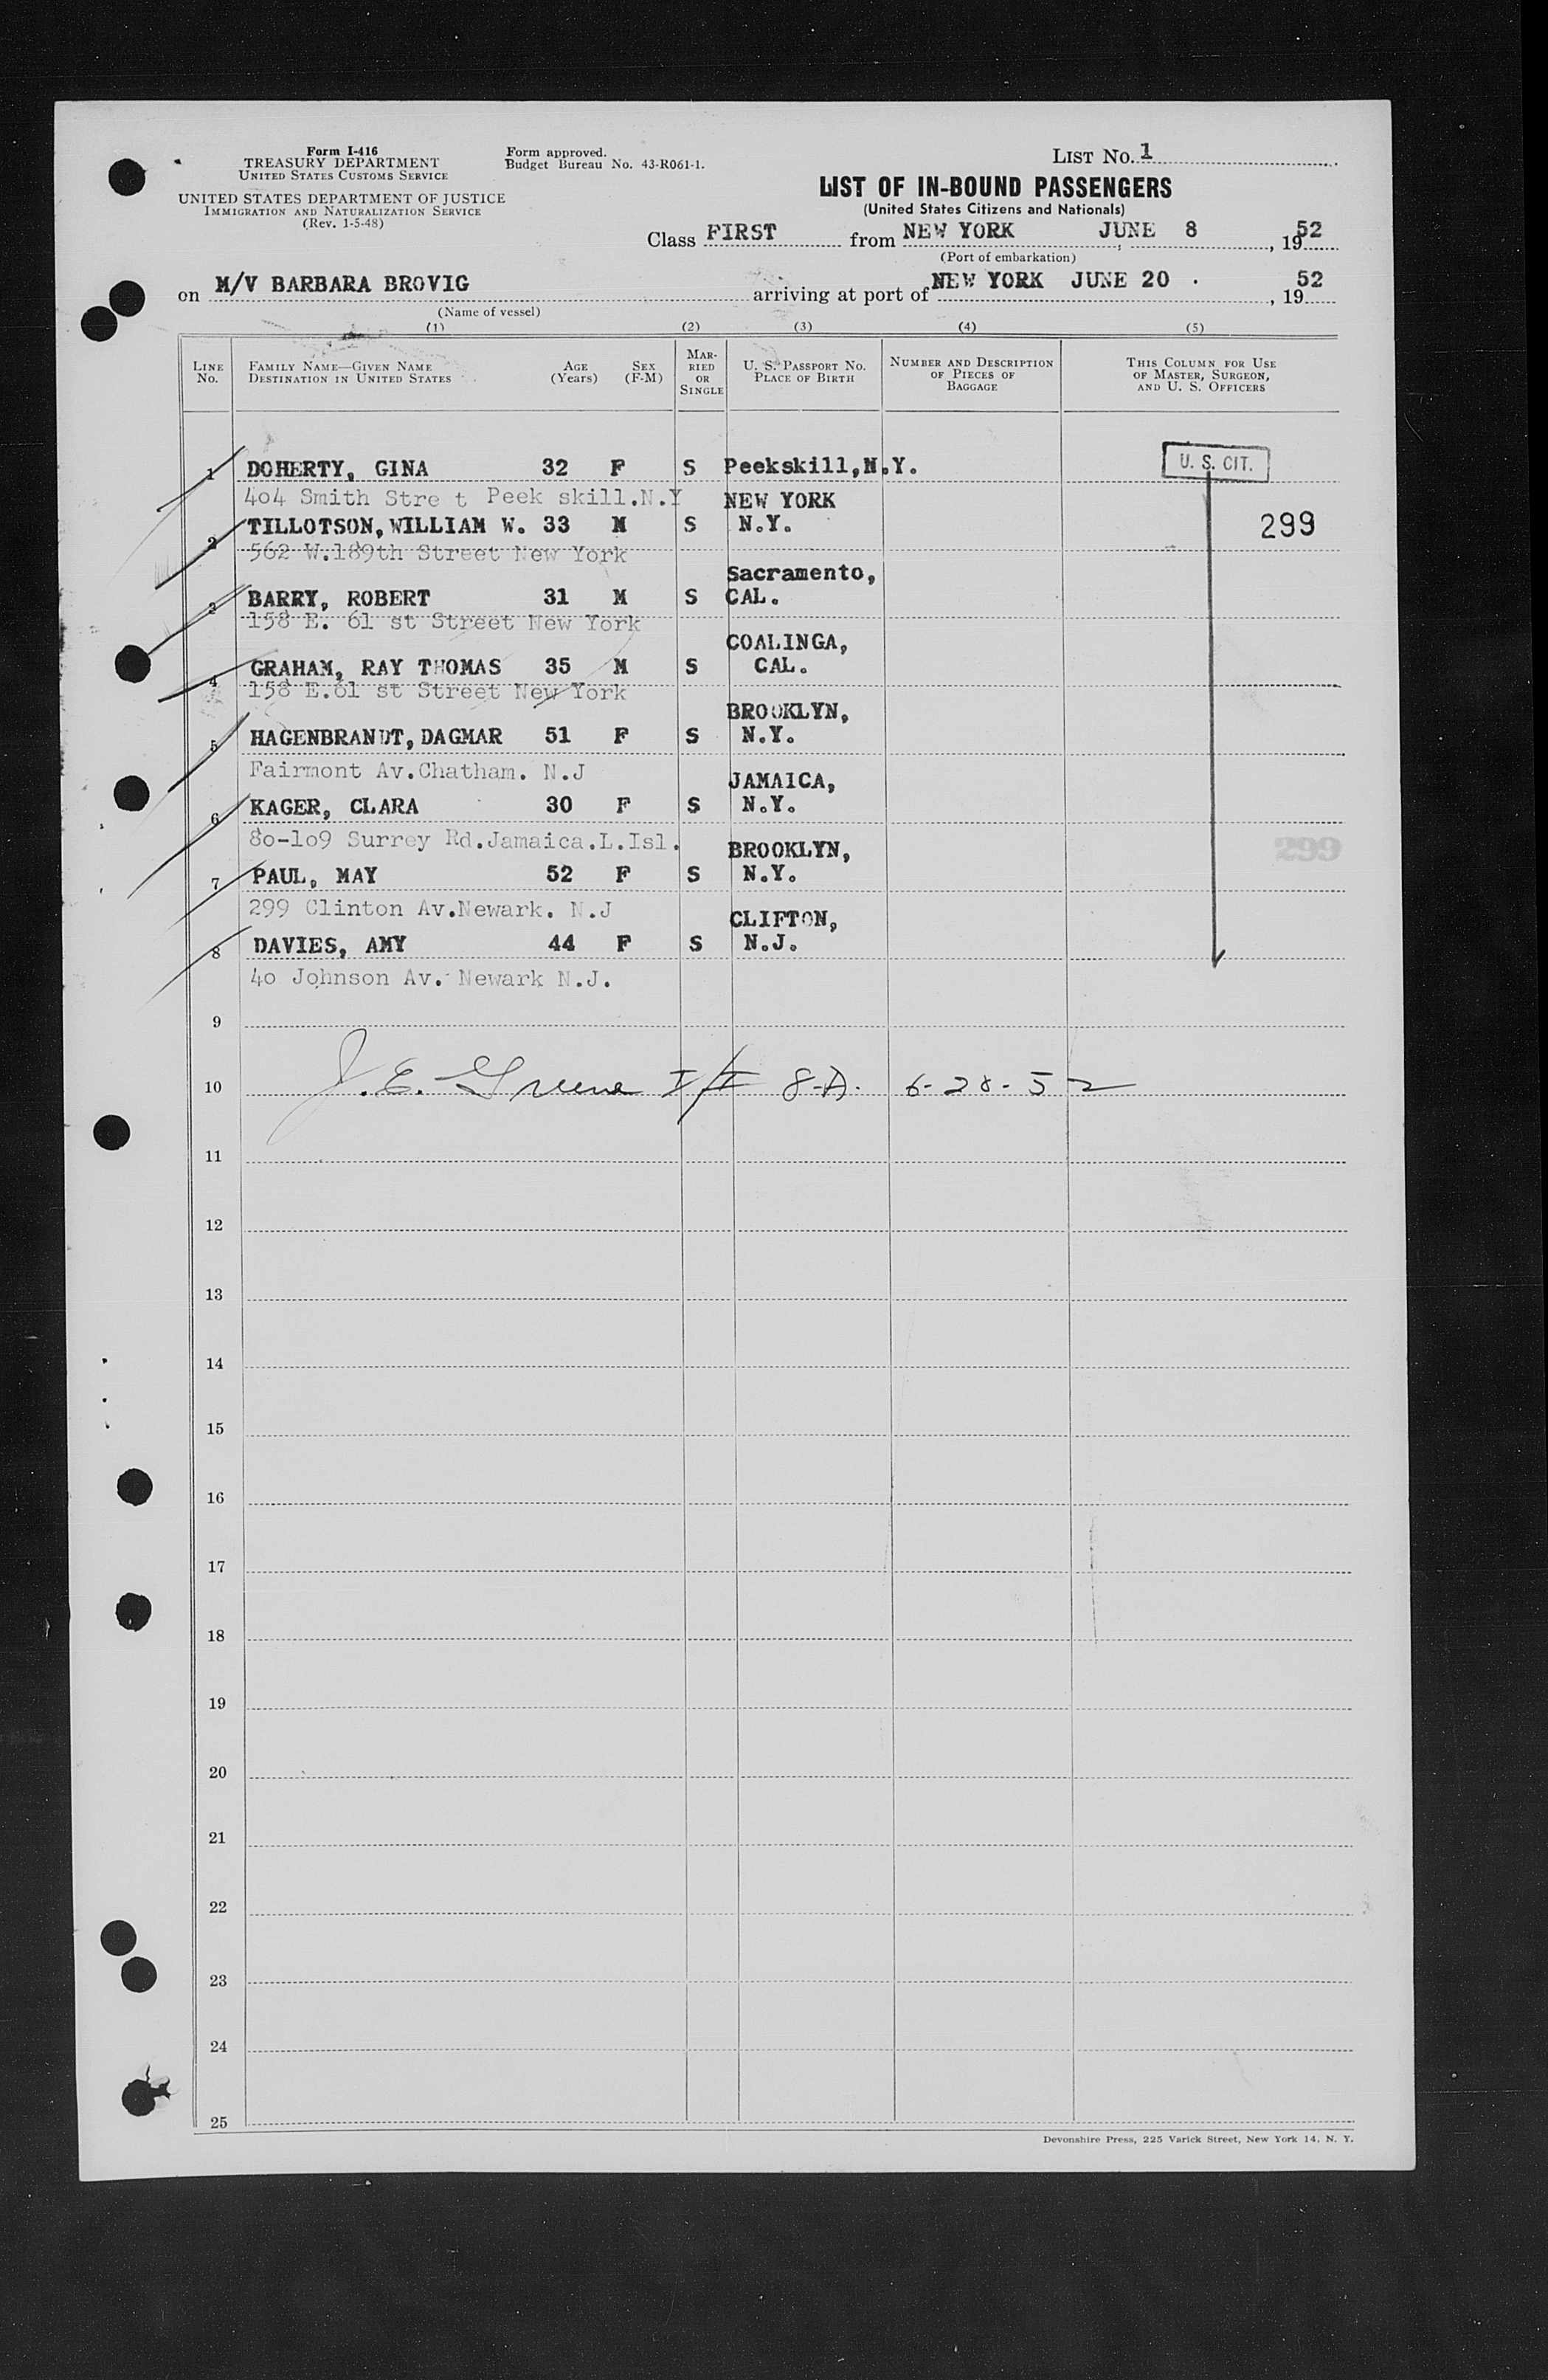 Form I-416
TREASURY DEPARTMENT
UNITED STATES CUSTOMS SERVICE
UNITED STATES DEPARTMENT OF JUSTICE
IMMIGRATION AND NATURALIZATION SERVICE
(Rev. 1-5-48)
Form approved.
Budget Bureau No. 43-R061-1.
LIST NO. 1
LIST OF IN-BOUND PASSENGERS
(United States Citizens and Nationals)
Class FIRST from NEW YORK JUNE 8, 1952
(Port of embarkation)
on M/V BARBARA BROVIG arriving at port of NEW YORK JUNE 20 . , 1952
(Name of vessel)
(1) (2) (3) (4) (5)
LINE NO.
FAMILY NAME—GIVEN NAME
DESTINATION IN UNITED STATES
AGE (Years)
SEX (F-M)
MARRIED OR SINGLE
U. S. PASSPORT NO.
PLACE OF BIRTH
NUMBER AND DESCRIPTION
OF PIECES OF
BAGGAGE
THIS COLUMN FOR USE
OF MASTER, SURGEON,
AND U. S. OFFICERS
1 DOHERTY, GINA 32 F S Peekskill,N.Y. U. S. CIT.
404 Smith Stre t Peek skill.N.Y NEW YORK
2 TILLOTSON,WILLIAM W. 33 M S N.Y. 299
562 W.189th Street New York
Sacramento,
3 BARRY, ROBERT 31 M S CAL.
158 E. 61 st Street New York
COALINGA,
4 GRAHAM, RAY THOMAS 35 M S CAL.
158 E.61 st Street New York
BROOKLYN,
5 HAGENBRANDT,DAGMAR 51 F S N.Y.
Fairmont Av.Chatham. N.J
JAMAICA,
6 KAGER, CLARA 30 F S N.Y.
80-109 Surrey Rd.Jamaica.L.Isl.
BROOKLYN, 299
7 PAUL, MAY 52 F S N.Y.
299 Clinton Av.Newark. N.J
CLIFTON,
8 DAVIES, AMY 44 F S N.J.
40 Johnson Av. Newark N.J.
9
10 J. E. Greene I/I 8-A. 6-28-52
11
12
13
14
15
16
17
18
19
20
21
22
23
24
25
Devonshire Press, 225 Varick Street, New York 14, N. Y.